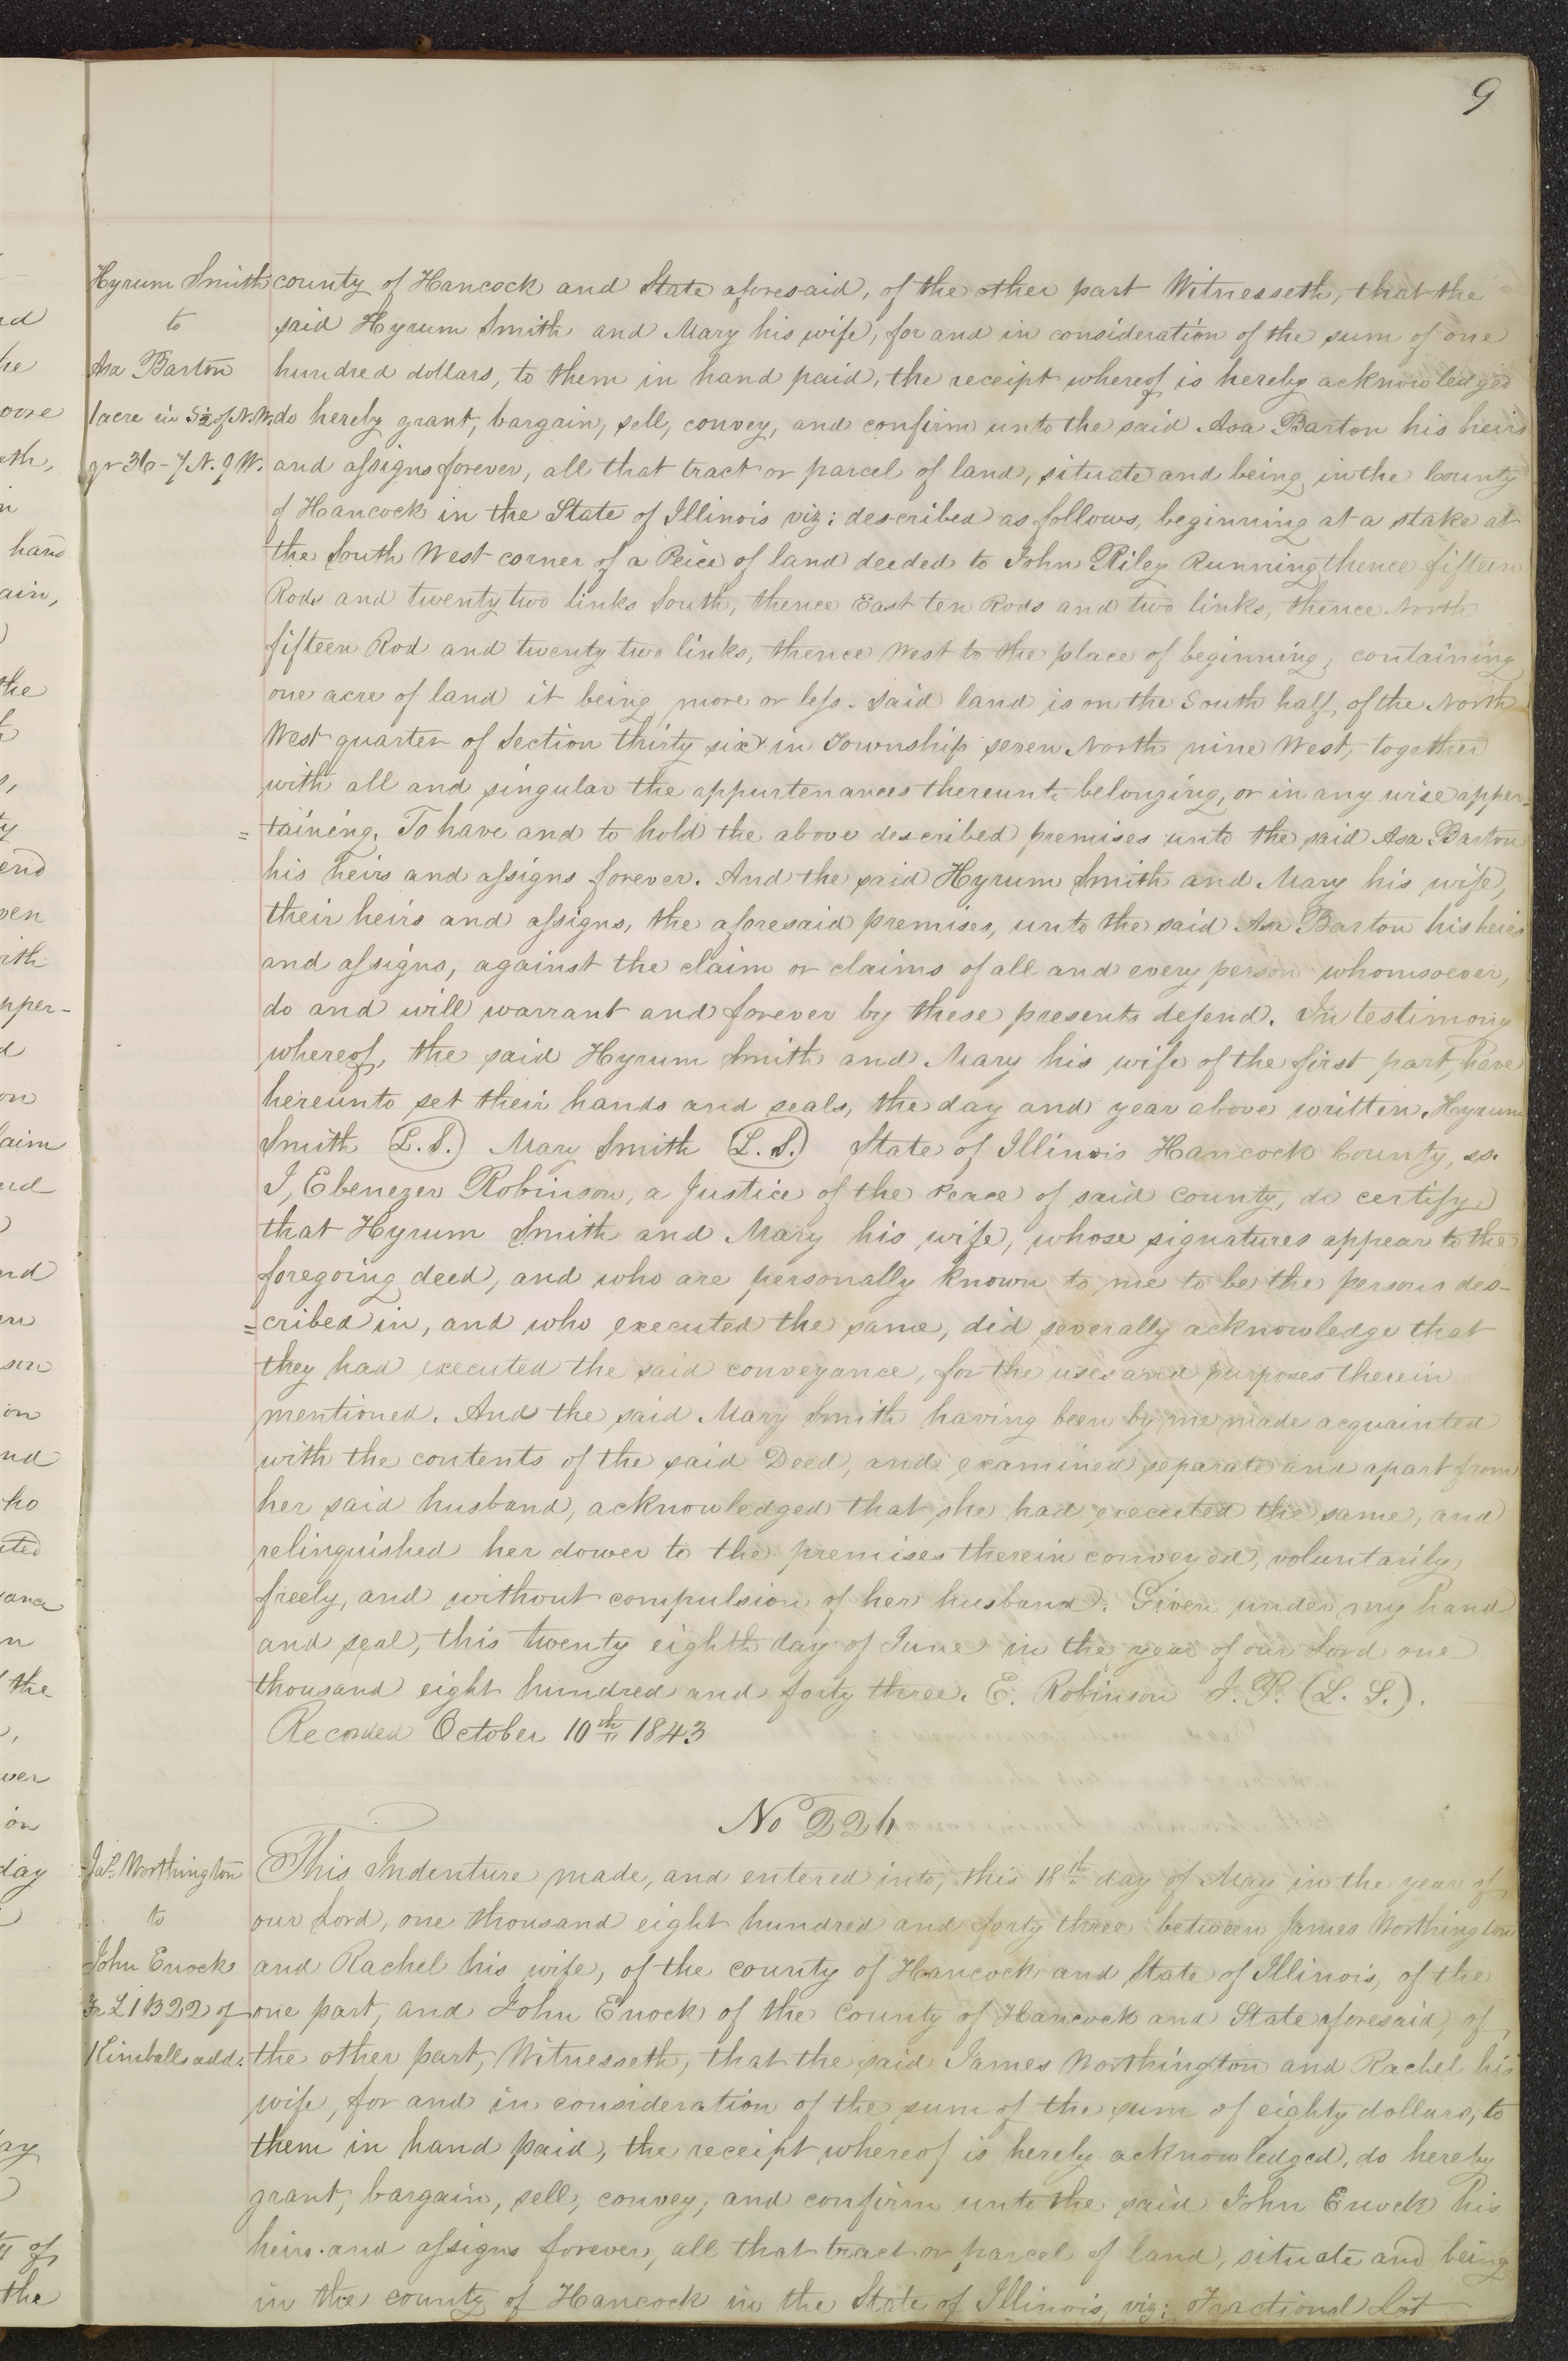 9
Hyrum Smith
to
Asa Barton
1 acre in S½ of N.W.
qr 36-7N. 9W.
county of Hancock and State aforesaid, of the other part Witnesseth, that the
said Hyrum Smith and Mary his wife, for and in consideration of the sum of one
hundred dollars, to them in hand paid, the receipt whereof is hereby acknowledged
do hereby grant, bargain, sell, convey, and confirm unto the said Asa Barton his heirs
and assigns forever, all that tract or parcel of land, situate and being in the County
of Hancock in the State of Illinois viz: described as follows, beginning at a stake at
the South West corner of a Peice of land deeded to John Riley Running thence fifteen
Rods and twenty two links South, thence East ten Rods and two links, thence North
fifteen Rod and twenty two links, thence West to the place of beginning, containing
one acre of land it being more or less. Said land is on the South half of the North
West quarter of Section thirty six in Township seven North nine West, together
with all and singular the appurtenances thereunto belonging, or in any wise apper-
=taining, To have and to hold the above described premises unto the said Asa Barton
his heirs and assigns forever. And the said Hyrum Smith and Mary his wife,
their heirs and assigns, the aforesaid premises, unto the said Asa Barton his heirs
and assigns, against the claim or claims of all and every person whomsoever,
do and will warrant and forever by these presents defend. In testimony
whereof, the said Hyrum Smith and Mary his wife of the first part, have
hereunto set their hands and seals, the day and year above written, Hyrum
Smith (L.S.) Mary Smith (L.S.) State of Illinois Hancock County, ss.
I, Ebenezer Robinson, a Justice of the Peace of said county, do certify
that Hyrum Smith and Mary his wife, whose signatures appear to the
foregoing deed, and who are personally known to me to be the persons des-
=cribed in, and who executed the same, did severally acknowledge that
they had executed the said conveyance, for the uses and purposes therein
mentioned. And the said Mary Smith having been by me made acquainted
with the contents of the said Deed, and examined separate and apart from
her said husband, acknowledged that she had executed the same, and
relinquished her dower to the premises therein conveyed, voluntarily
freely, and without compulsion of her husband. Given under my hand
and seal, this twenty eighth day of June in the year of our Lord one
thousand eight hundred and forty three. E. Robinson J.P. (L.S.).
Recorded October 10th 1843
No 226
Jas. Worthington
to
John Enock
Fr L1 B22 of
Kimballs add.
This Indenture made, and entered into, this 18th day of May in the year of
our Lord, one thousand eight hundred and forty three between James Worthington
and Rachel his wife, of the county of Hancock and State of Illinois, of the
one part, and John Enock of the County of Hancock and State aforesaid, of
the other part, Witnesseth, that the said James Worthington and Rachel his
wife, for and in consideration of the sum of the sum of eighty dollars, to
them in hand paid, the receipt whereof is hereby acknowledged, do hereby
grant, bargain, sell, convey, and confirm unto the said John Enock his
heirs and assigns forever, all that tract or parcel of land, situate and being
in the county of Hancock in the State of Illinois, viz: Fractional Lot